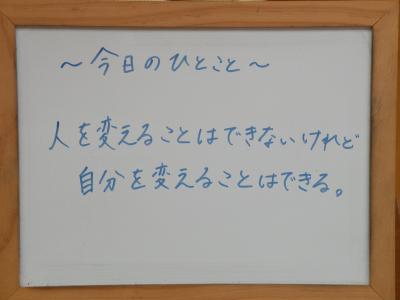 ～今日のひとこと～
人を変えることはできないけれど
自分を変えることはできる。